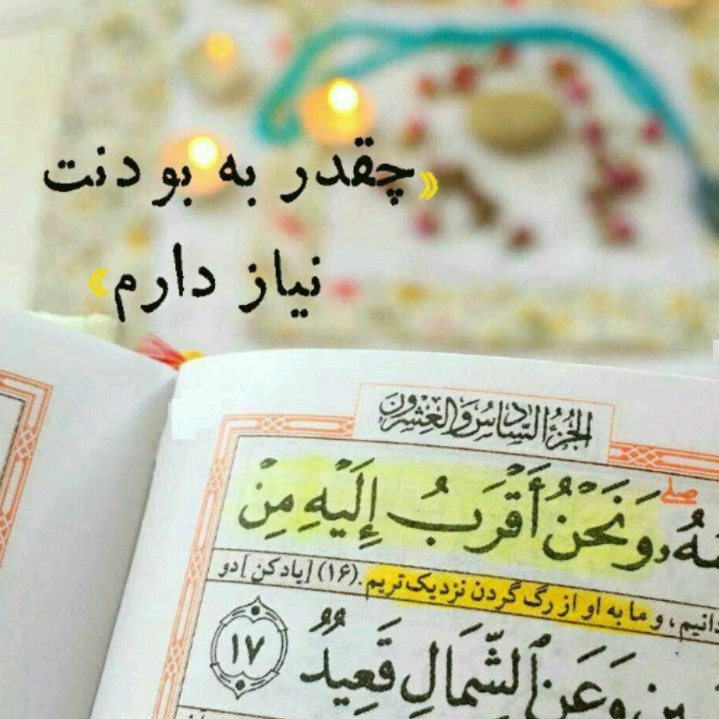 «چقدر به بودنت
نیاز دارم»
الجُزءُ السَّادِسُ وَالعِشرُون
وَنَحْنُ أَقْرَبُ إِلَيْهِ مِنْ
دانیم، و ما به او از رگ گردن نزدیک‌تریم. (۱۶) [یاد کن] دو
وَعَنِ ٱلشِّمَالِ قَعِيدٌ ١٧